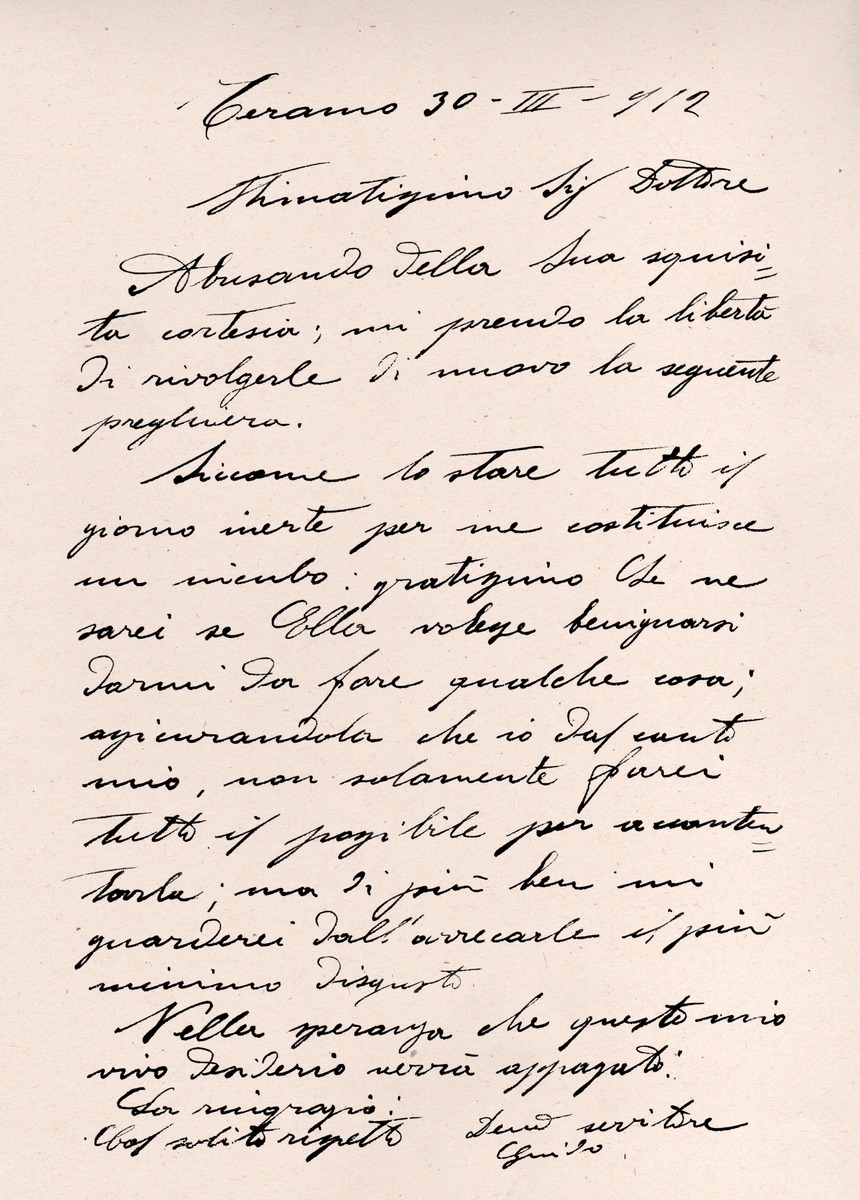 Teramo 30 - III - 912
Stimatissimo Sig Dottore
Abusando della Sua squisi=
ta cortesia; mi prendo la libertà
di rivolgerle di nuovo la seguente
preghiera.
Siccome lo stare tutto il
giorno inerte per me costituisce
un incubo: gratissimo Le ne
sarei se Ella volesse benignarsi
darmi da fare qualche cosa;
assicurandola che io dal canto
mio, non solamente farei
tutto il possibile per acconten=
tarla; ma di più ben mi
guarderei dall'arrecarle il più
minimo disgusto
Nella speranza che questo mio
vivo desiderio verrà appagato:
La ringrazio:
Col solito rispetto Devmo servitore
Guido.